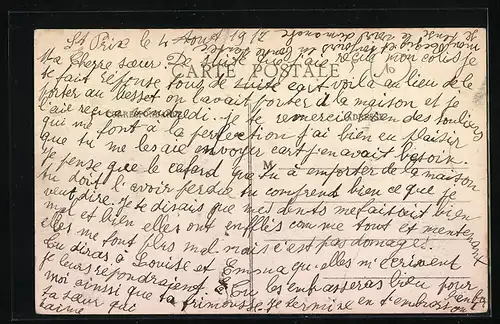 St Prix le 4 Aout 1912
Ma Cherre sœur. De suite que j'aie reçua mon colis je
te fait réponse tous de suite cart voila au lieu de le
porter au Besset on l'avait porter à la maison et je
l'aie reçua samedi. Je te remercie bien des souliers
qui me font à la perfection j'ai bien eu plaisir
que tu me les aie envoyer cart j'en avait besoin.
Je pense que le cafard que tu à emporter de la maison
tu doit l'avoir perdue tu comprend bien ce que je
veut dire. Je te dirais que mes dents me faisait bien
mal et bien elles ont enflés comme tout et mentenant
elles me font plus mal mais c'est pas domage.
tu diras à Louise et Emma qu'elles m'écrivent
je leurs répondrai Tu les embrasseras bien pour
moi ainsi que ta frimousse je termine en t'embrassant
ta sœur qui
t'aime
CARTE POSTALE
CORRESPONDANCE
ADRESSE
M